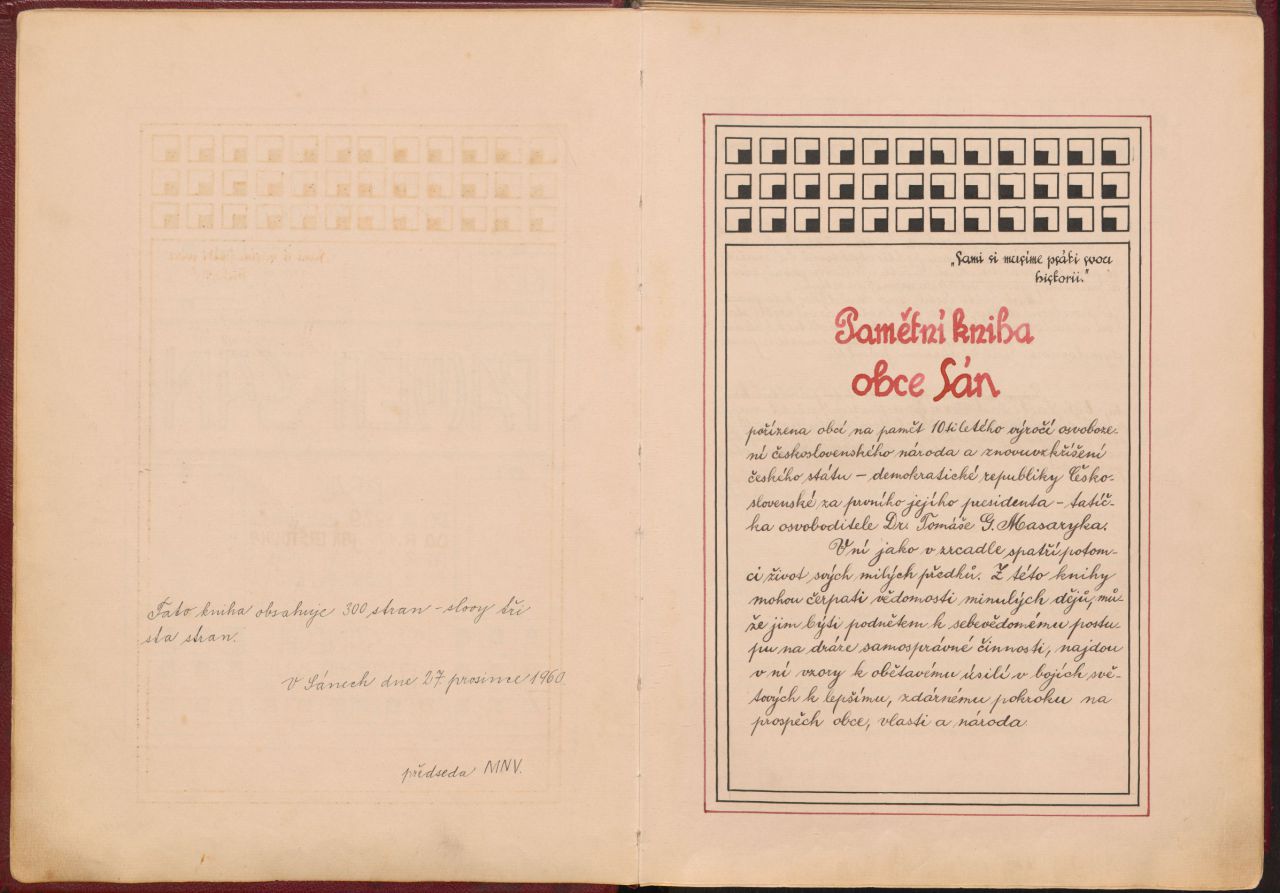 Tato kniha obsahuje 300 stran - slovy tři
sta stran.
V Sánech dne 27. prosince 1960
předseda MNV.
„Sami si musíme psáti svou
historii."
Pamětní kniha
obce Sán
pořízena obcí na pamět 10tiletého výročí osvoboze-
ní československého národa a znovuvzkříšení
českého státu – demokratické republiky Česko-
slovenské za prvního jejího presidenta – tatíč-
ka osvoboditele Dr. Tomáše G. Masaryka.
V ní jako v zrcadle spatří potom-
ci život svých milých předků. Z této knihy
mohou čerpati vědomosti minulých dějů, mů-
že jim býti podnětem k sebevědomému postu-
pu na dráze samosprávné činnosti, najdou
v ní vzory k obětavému úsilí v bojích svě-
tových k lepšímu, zdárnému pokroku na
prospěch obce, vlasti a národa